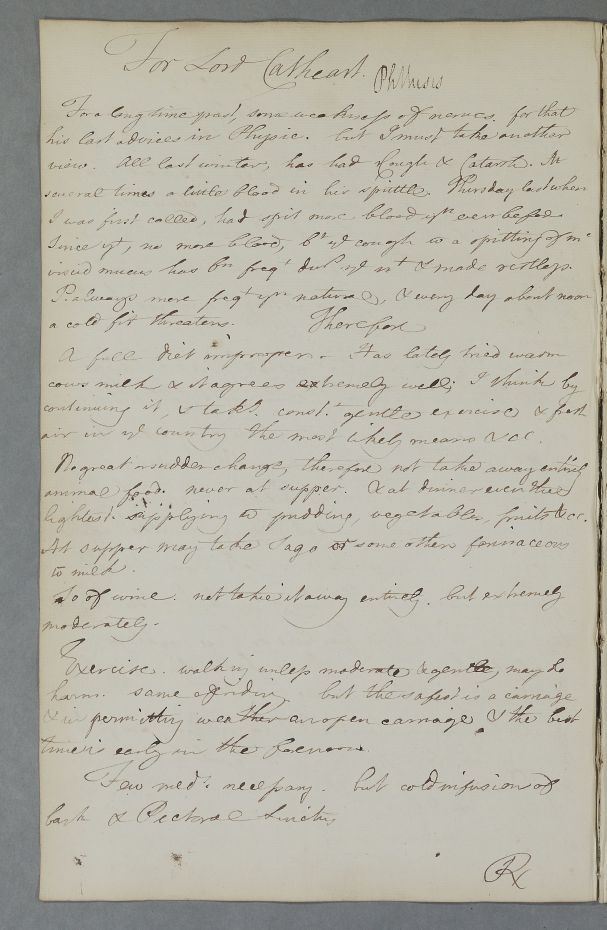 For Lord Cathcart. Phthisis
For a long time past, some weakness of nerves. for that
his last advices in Physic. but I must take another
view. All last winter, has had Cough & Catarrh. At
several times a little blood in his spittle. Thursday last when
I was first called, had spit more blood yn ever before
Since yt, no more blood, bt ye cough & a spitting of
viscid mucus has bn freqt ye nt & made restless.
P. always more freqt yn natural, & every day about noon
a cold fit threatens. Therefore
A full diet improper. Has lately tried warm
cows milk & it agrees extremely well; I think by
continuing it, & takg. const. gentle exercise & fresh
air in ye country the most likely means &cc.
No great or sudden change, therefore not take away entirely
animal food. never at supper. & at dinner even the
lightest. supplying wt pudding, vegetables, fruits &cc.
At supper may take Sago or some other farinaceous
to milk.
So of wine. not take it away entirely. but extremely
moderately.
Exercise. walking unless moderate & gentle, may do
harm. same of riding but the safest is a carriage
& in permitting weather an open carriage & the best
time is early in the forenoon.
Few meds. necessary. but cold infusion of
bark & Pectoral Linctus
Rx